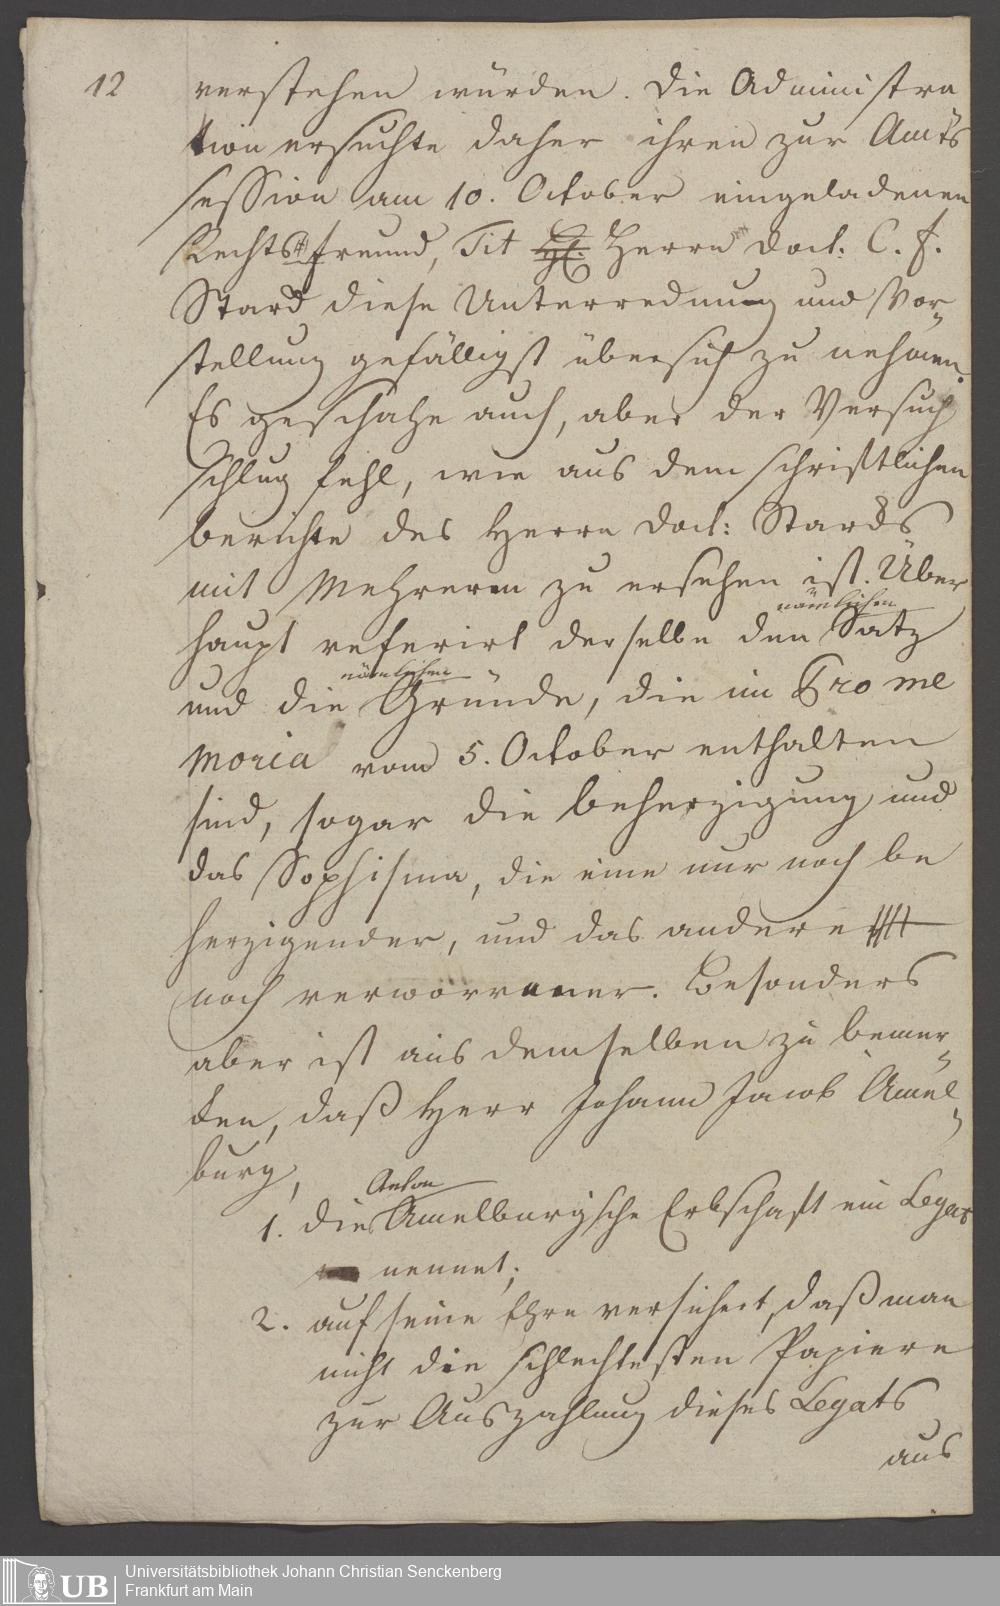 12
verstehen würden. Die Administra
tion ersuchte daher ihren zur Amts
session am 10. October eingeladenen
Rechtsfreund, Tit Herrn Doct: C. F.
Starck diese Unterredung und Vor„
stellung gefälligst über sich zu nehmen.
Es geschahe auch, aber der Versuch
schlug fehl, wie aus dem schriftlichen
berichte des Herrn Doct: Starcks
mit Mehrerem zu ersehen ist. Über
nämlichen
haupt referirt derselbe den Satz
nämlichen
und die Gründe, die im Pro me
moria vom 5. October enthalten
sind, sogar die beherzigung und
das Sophisma, die eine nur noch be
herzigender, und das andere
noch verworrener. Besonders
aber ist aus demselben zu bemer„
ken, daß Herr Johann Jacob Amel„
burg,
Anton
1. die Amelburgsche Erbschaft ein Legat
nennet;
2. auf seine Ehre versichert, daß man
nicht die schlechtesten Papiere
zur Auszahlung dieses Legats
aus
UB
Universitätsbibliothek Johann Christian Senckenberg
Frankfurt am Main